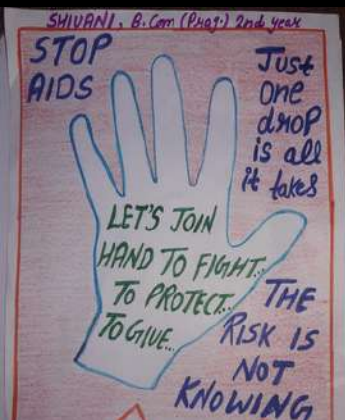 SHIVANI, B.Com (Prog.) 2nd year
STOP
AIDS
Just
one
drop
is all
it takes
LET'S JOIN
HAND TO FIGHT..
TO PROTECT..
TO GIVE...
THE
RISK IS
NOT
KNOWING